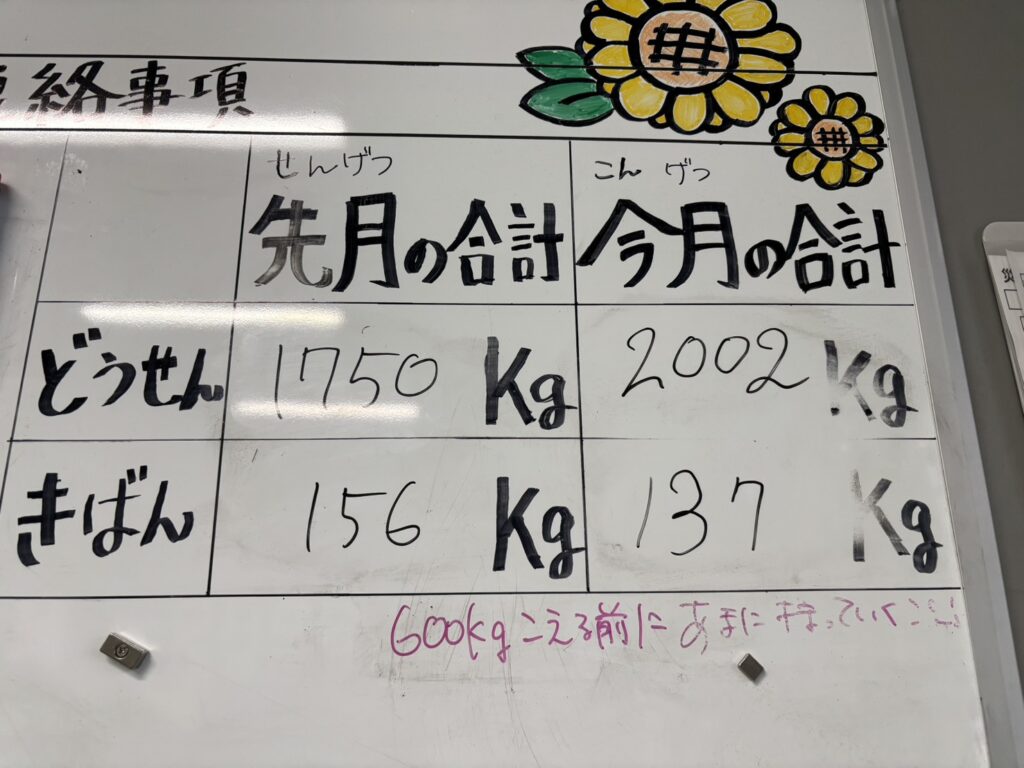 絡事項
せんげつ こんげつ
先月の合計 今月の合計
どうせん 1750 Kg 2002 Kg
きばん 156 Kg 137 Kg
600kgこえる前に あまに 持っていく